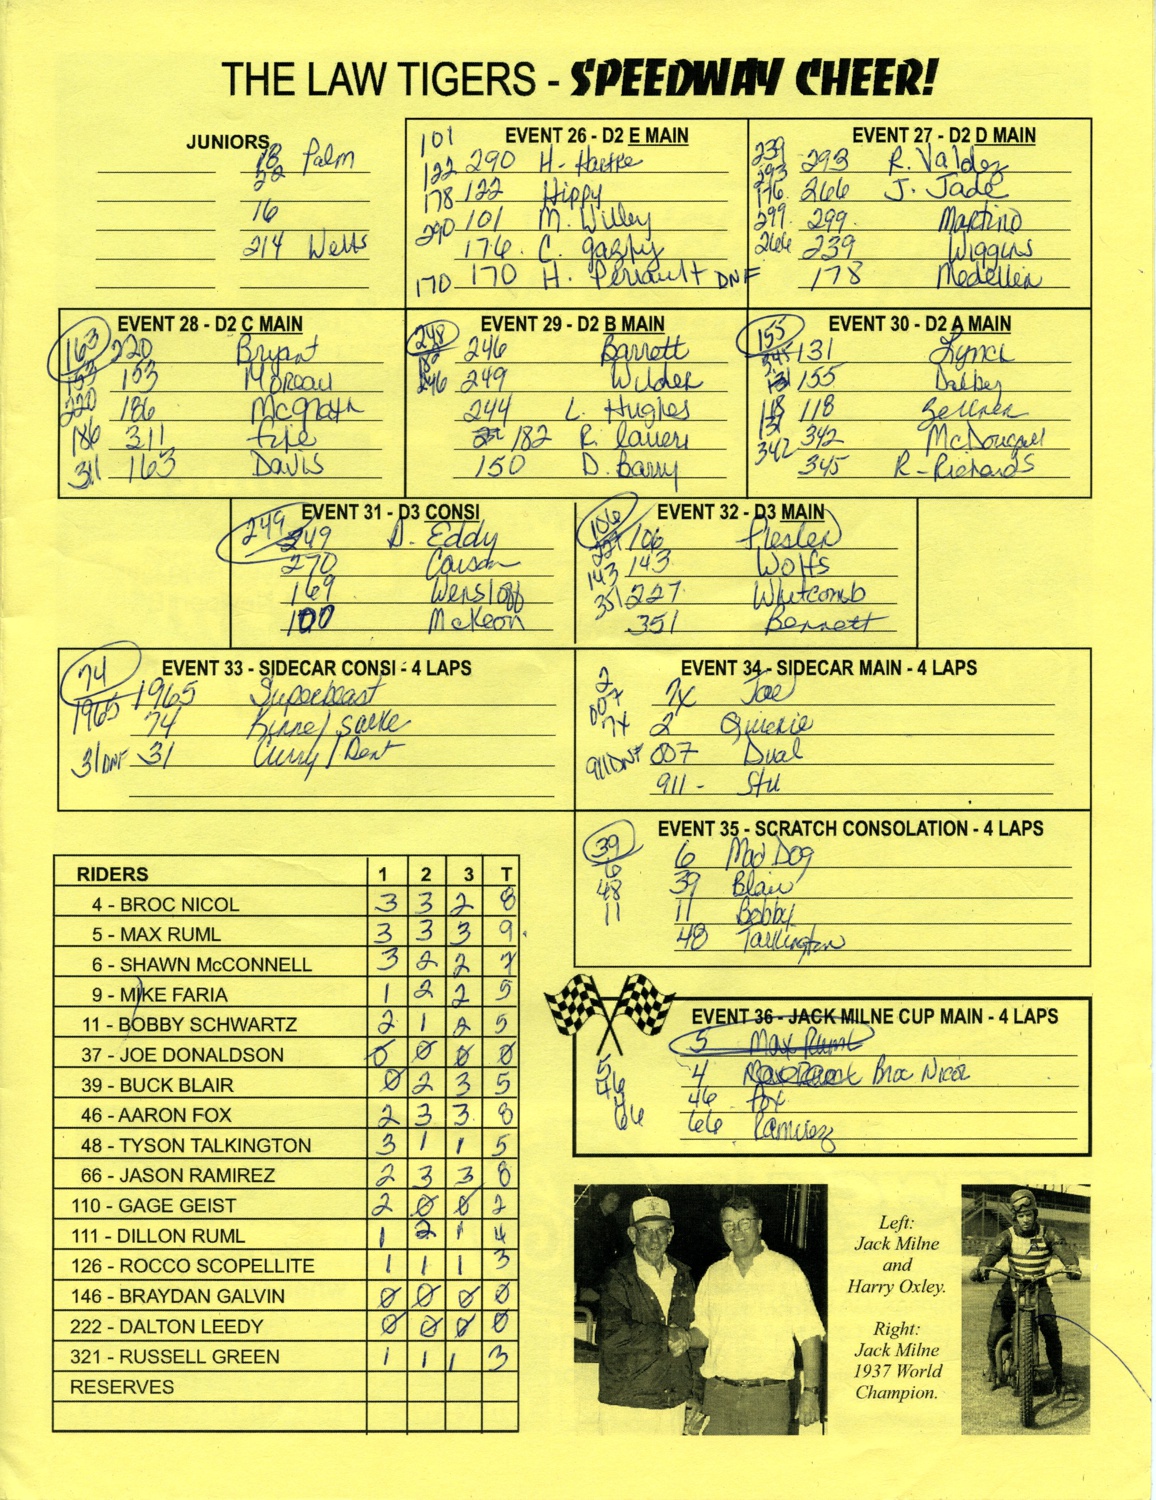 THE LAW TIGERS - SPEEDWAY CHEER!
JUNIORS
18 Palm
22
16
214 Wells
EVENT 26 - D2 E MAIN
101
122 290 H. Hartke
178 122 Hippy
290 101 M. Willey
176 C.
170 170 H. Perrault DNF
EVENT 27 - D2 D MAIN
239 293 R. Valdez
293
176 266 J. Jade
299 299 Martino
266 239 Wiggins
178 Medellin
EVENT 28 - D2 C MAIN
163 220 Bryant
153 153 Moreau
220 186 McGrath
186 311 Fife
311 163 Davis
EVENT 29 - D2 B MAIN
248 246 Barrett
182
246 249 Wilder
244 L. Hughes
182 R. Laueri
150 D. Barry
EVENT 30 - D2 A MAIN
155 131 Lynch
345
131 155 Dalbey
118 118 Zellner
131
342 342 McDougall
345 R - Richards
EVENT 31 - D3 CONSI
249 249 D. Eddy
270 Carson
169 Wensloff
100 McKeon
EVENT 32 - D3 MAIN
106 106 Presley
227
143 143 Wolfs
351 227 Whitcomb
351 Bennett
EVENT 33 - SIDECAR CONSI - 4 LAPS
74
1965 1965 Superbeast
74 Kinne/ Sarke
31 DNF 31 Curry / Dent
EVENT 34 - SIDECAR MAIN - 4 LAPS
2 7x Joe
007
7x 2 Quickie
911 DNF 007 Dual
911 - Stu
EVENT 35 - SCRATCH CONSOLATION - 4 LAPS
39 6 Mad Dog
6
48 39 Blair
11 11 Bobby
48 Talkington
RIDERS 1 2 3 T
4 - BROC NICOL 3 3 2 8
5 - MAX RUML 3 3 3 9
6 - SHAWN McCONNELL 3 2 2 7
9 - MIKE FARIA 1 2 2 5
11 - BOBBY SCHWARTZ 2 1 2 5
37 - JOE DONALDSON 0 0 0 0
39 - BUCK BLAIR 0 2 3 5
46 - AARON FOX 2 3 3 8
48 - TYSON TALKINGTON 3 1 1 5
66 - JASON RAMIREZ 2 3 3 8
110 - GAGE GEIST 2 0 0 2
111 - DILLON RUML 1 2 1 4
126 - ROCCO SCOPELLITE 1 1 1 3
146 - BRAYDAN GALVIN 0 0 0 0
222 - DALTON LEEDY 0 0 0 0
321 - RUSSELL GREEN 1 1 1 3
RESERVES
EVENT 36 - JACK MILNE CUP MAIN - 4 LAPS
5 Max Ruml
5 4 Broc Nicol
46 46 Fox
66 66 Ramirez
Left:
Jack Milne
and
Harry Oxley.
Right:
Jack Milne
1937 World
Champion.